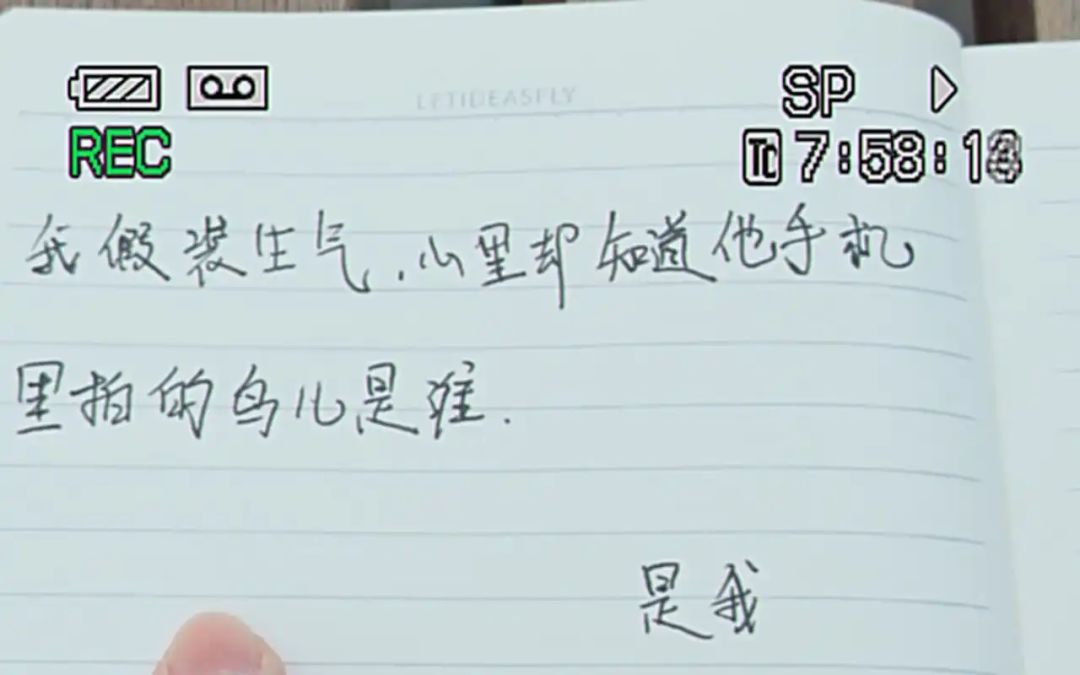 LETIDEASFLY
SP
REC
TC 7:58:18
我假装生气,心里却知道他手机
里拍的鸟儿是谁.
是我